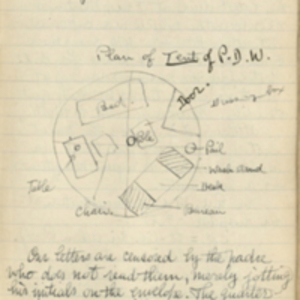 Plan of Tent of P.D.W.
Door.
Bed.
Pole
Pail
wash stand
desk
Table
Chair
Bureau
Our letters are censored by the padre
who does not read them, merely jotting
his initials on the envelope. The quarter-